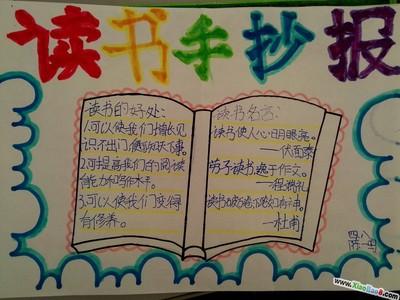 读书手抄报
读书的好处:
1.可以使我们增长见
识不出门便知天下事。
2.可提高我们的阅读
能力和写作水平。
3.可以使我们变得
有修养。
读书名言:
读书使人心明眼亮。
——伏尔泰
劳于读书逸于作文。
—程端礼
读书破万卷下笔如有神。
—杜甫
四、八
www.XiaoBao8.com